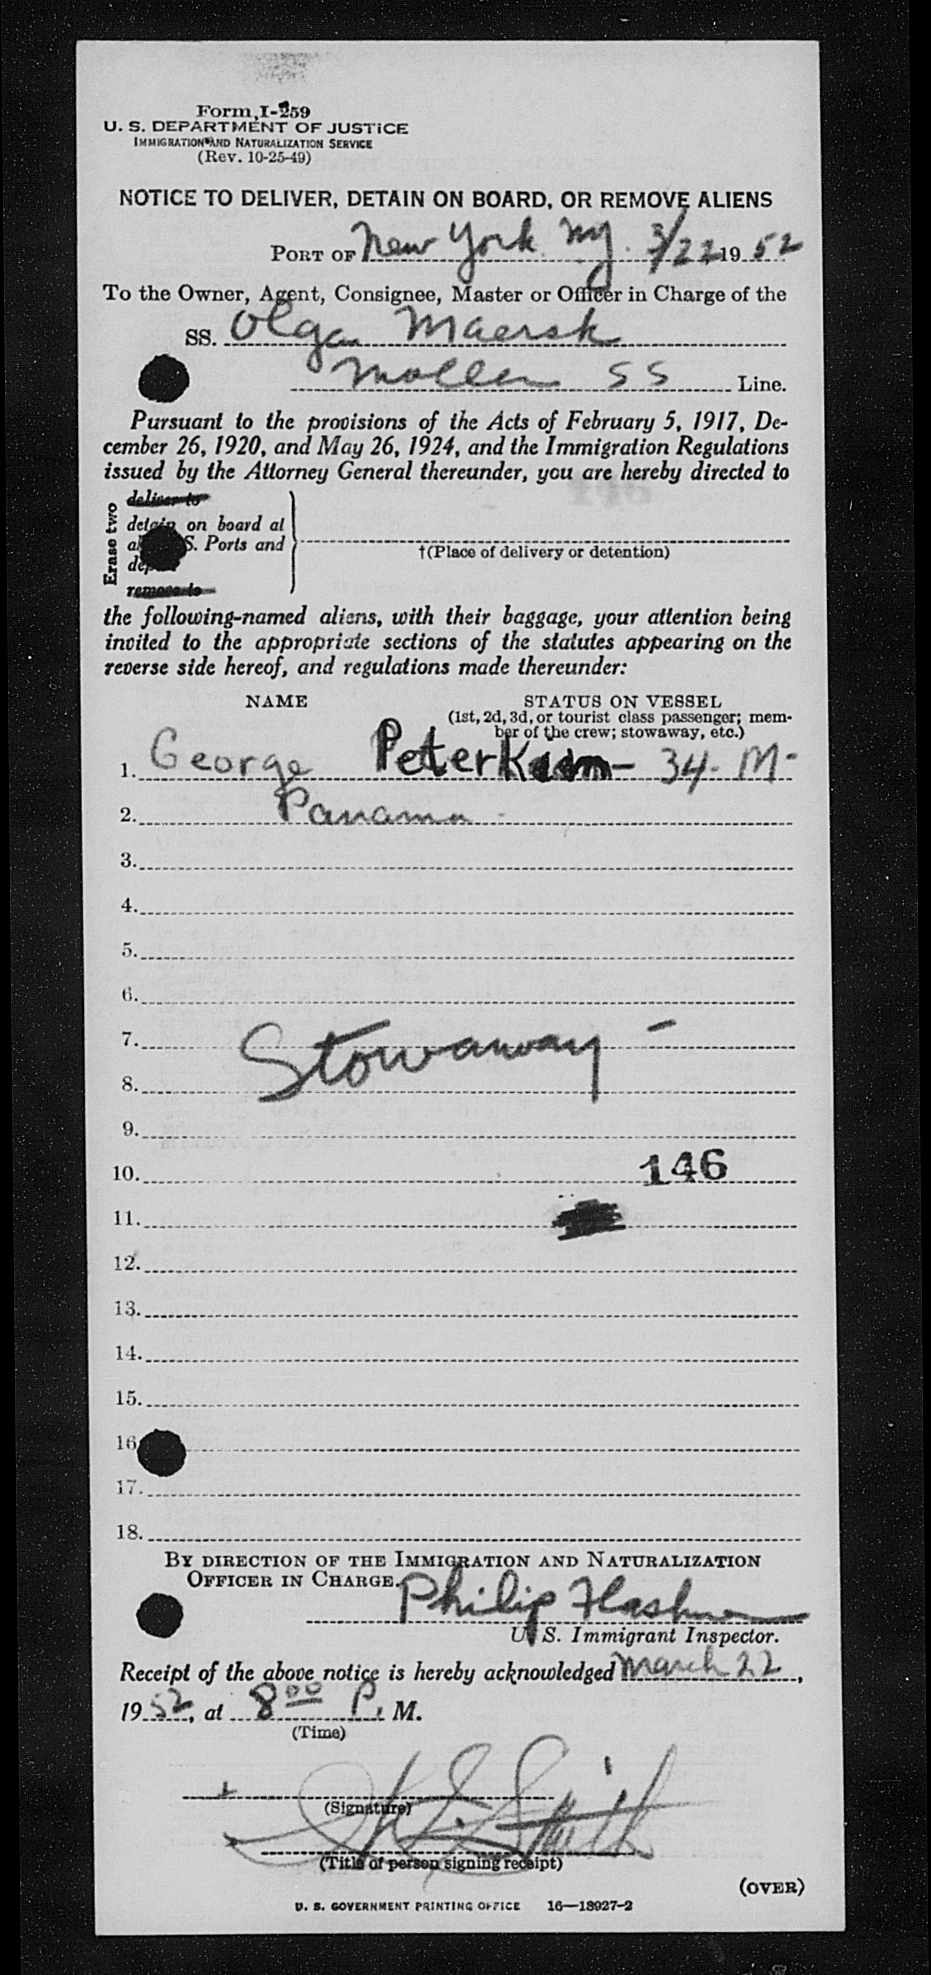 Form I-259
U. S. DEPARTMENT OF JUSTICE
IMMIGRATION AND NATURALIZATION SERVICE
(Rev. 10-25-49)
NOTICE TO DELIVER, DETAIN ON BOARD, OR REMOVE ALIENS
PORT OF New York Ny. 3/22 1952
To the Owner, Agent, Consignee, Master or Officer in Charge of the
SS. Olga Maersk
Moller SS Line.
Pursuant to the provisions of the Acts of February 5, 1917, De-
cember 26, 1920, and May 26, 1924, and the Immigration Regulations
issued by the Attorney General thereunder, you are hereby directed to
Erase two
deliver to
detain on board at
S. Ports and
†(Place of delivery or detention)
remove to
the following-named aliens, with their baggage, your attention being
invited to the appropriate sections of the statutes appearing on the
reverse side hereof, and regulations made thereunder:
NAME STATUS ON VESSEL
(1st, 2d, 3d, or tourist class passenger; mem-
ber of the crew; stowaway, etc.)
1. George Peter - 34 - M -
2. Panama -
3.
4.
5.
6.
7. Stowaway -
8.
9.
10. 146
11.
12.
13.
14.
15.
16
17.
18.
BY DIRECTION OF THE IMMIGRATION AND NATURALIZATION
OFFICER IN CHARGE.
Philip
U. S. Immigrant Inspector.
Receipt of the above notice is hereby acknowledged March 22,
1952, at 8 00 P. M.
(Time)
Smith
(Signature)
(Title of person signing receipt)
(OVER)
U. S. GOVERNMENT PRINTING OFFICE 16—18927-2